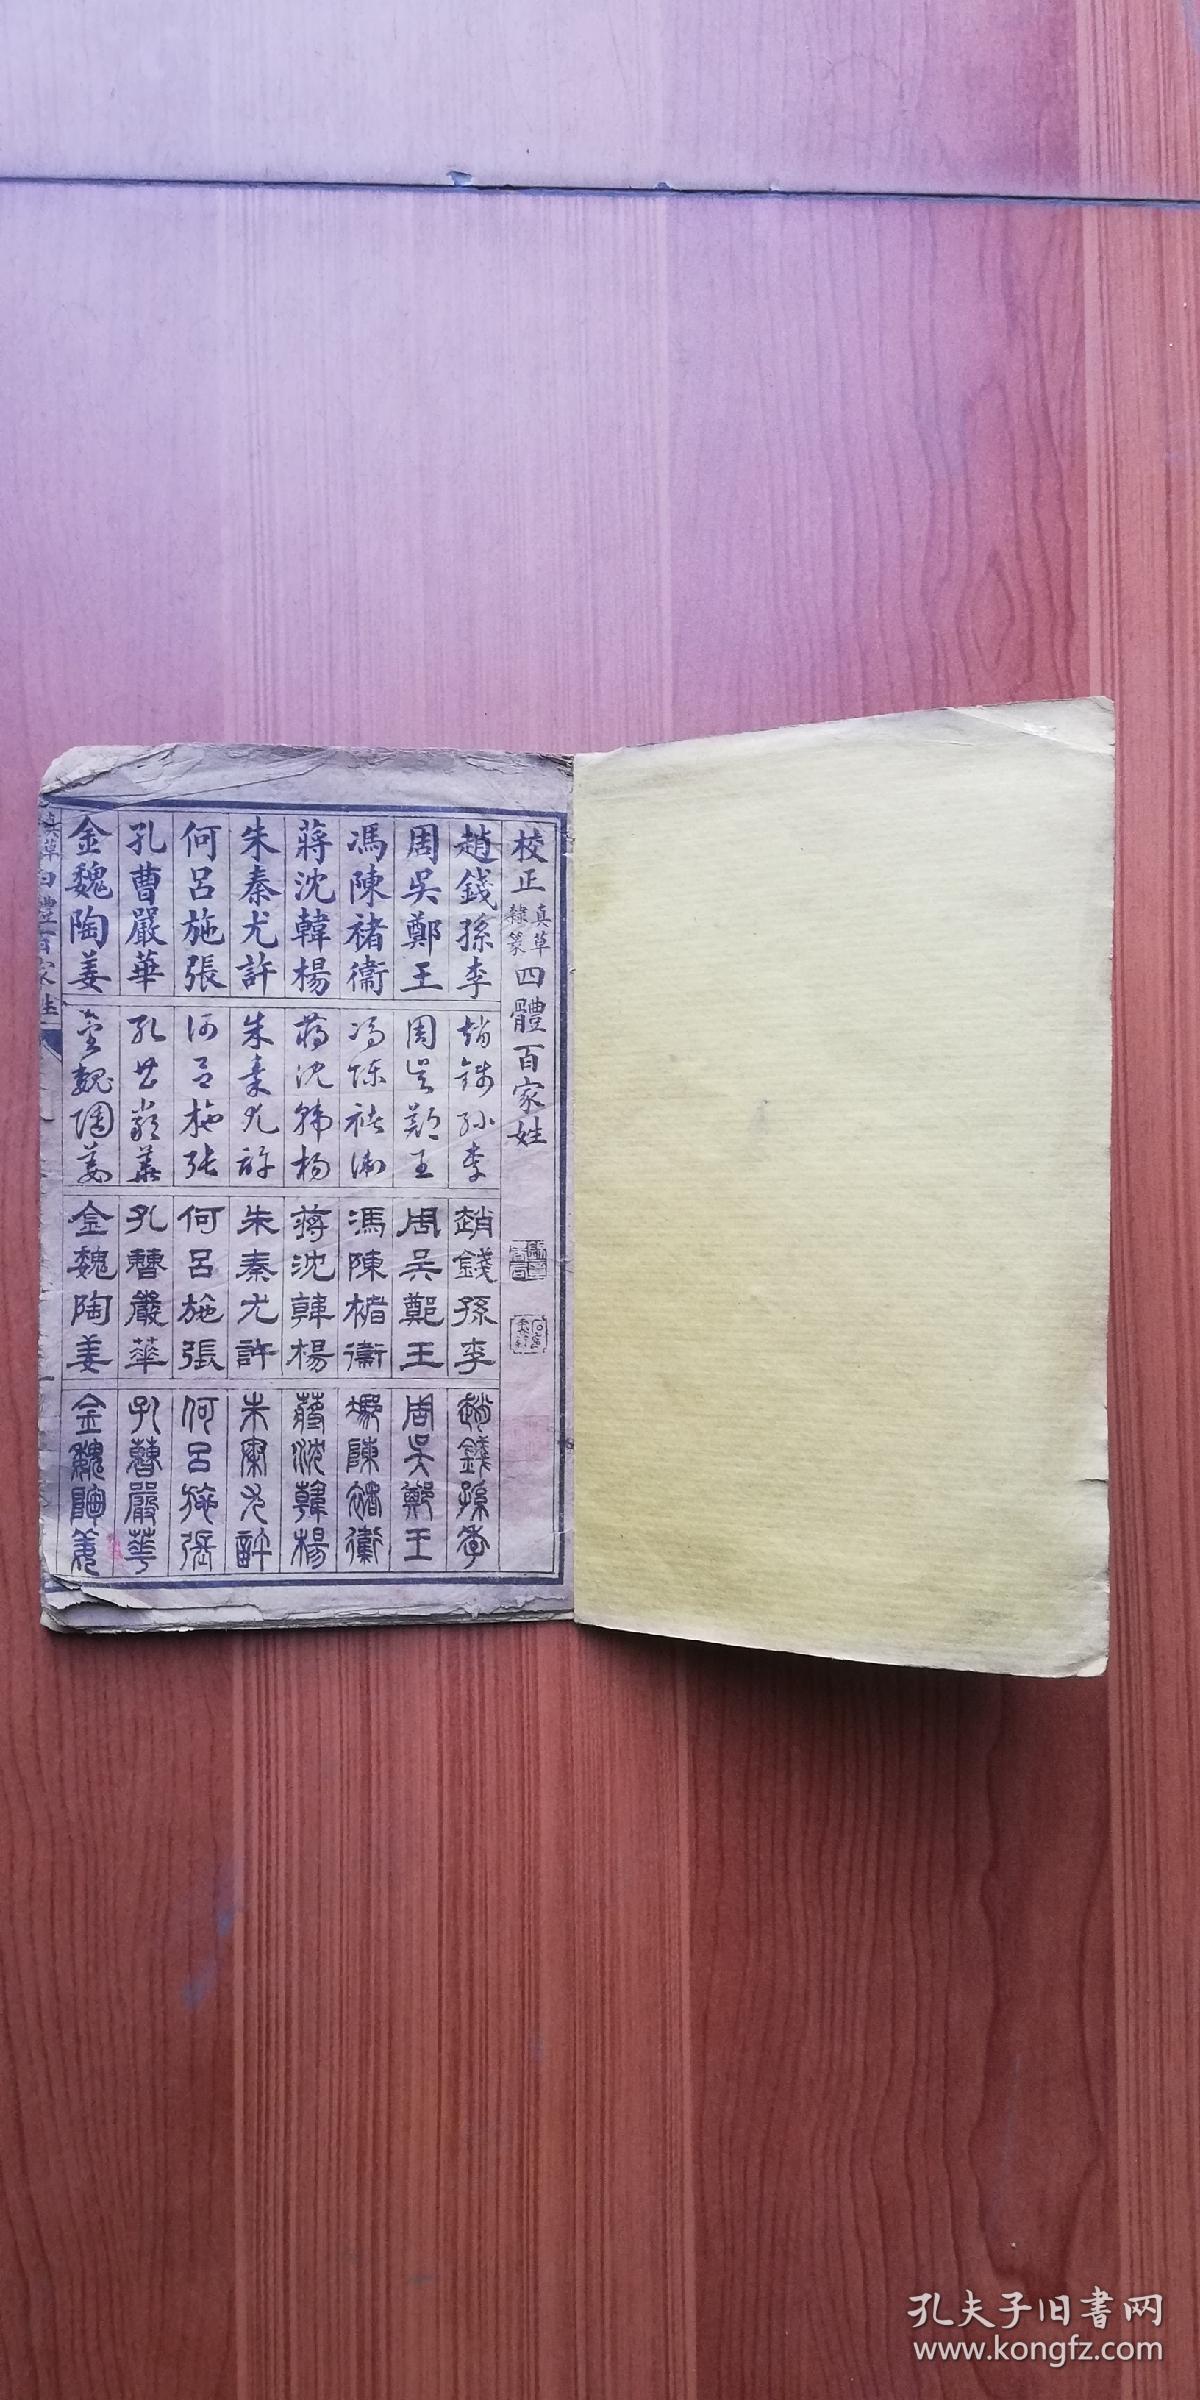 校正真草隸篆四體百家姓
趙錢孫李
周吳鄭王
馮陳褚衞
蔣沈韓楊
朱秦尤許
何呂施張
孔曹嚴華
金魏陶姜
趙錢孫李
周吳鄭王
馮陳褚衞
蔣沈韓楊
朱秦尤許
何呂施張
孔曹嚴華
金魏陶姜
趙錢孫李
周吳鄭王
馮陳褚衞
蔣沈韓楊
朱秦尤許
何呂施張
孔曹嚴華
金魏陶姜
趙錢孫李
周吳鄭王
馮陳褚衞
蔣沈韓楊
朱秦尤許
何呂施張
孔曹嚴華
金魏陶姜
真草四體百家姓
孔夫子旧書网
www.kongfz.com